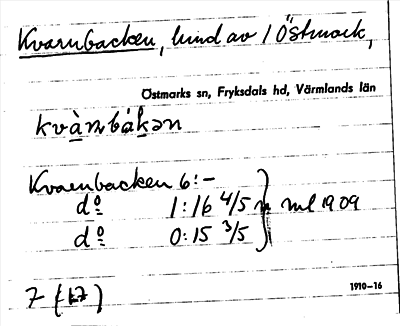 Kvarnbacken, lund av 1 Östmark,
Östmarks sn, Fryksdals hd, Värmlands län
kvànbákən
Kvarnbacken 6:-
dº 1:16 4/5
dº 0:15 3/5
ml 1909
7 (17)
1910-16